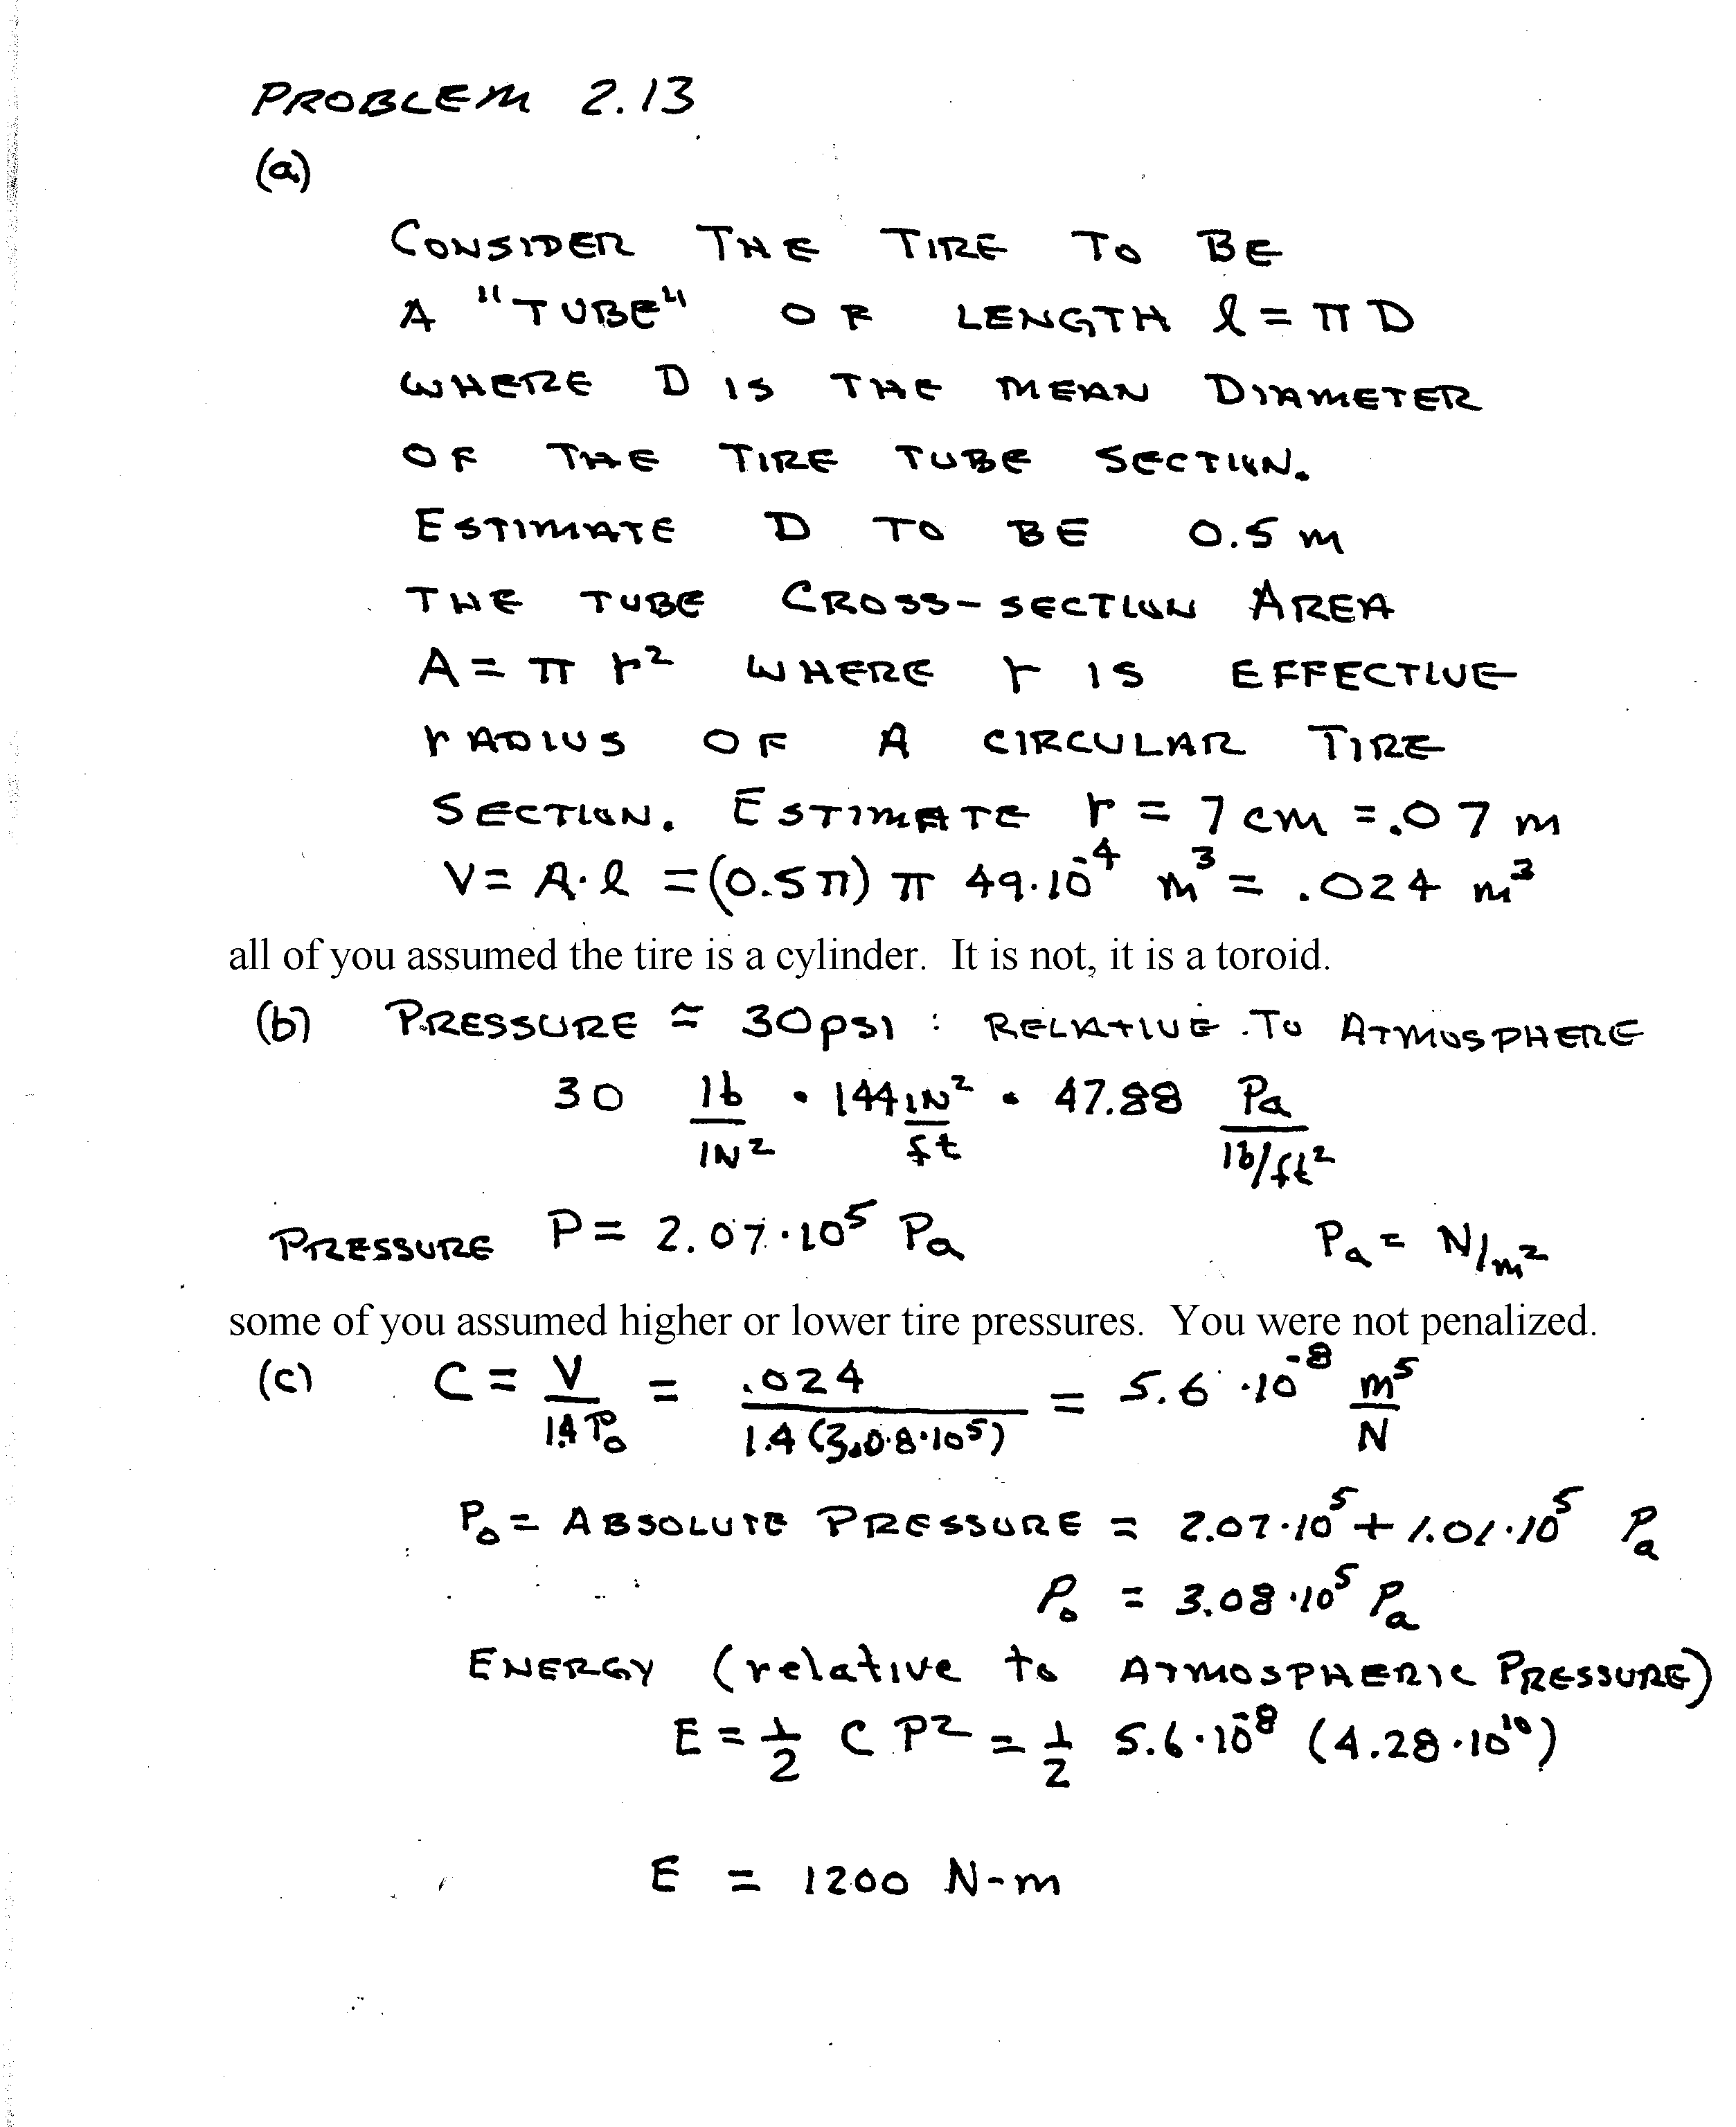 PROBLEM 2.13
(a)
CONSIDER THE TIRE TO BE
A "TUBE" OF LENGTH l = π D
WHERE D IS THE MEAN DIAMETER
OF THE TIRE TUBE SECTION.
ESTIMATE D TO BE 0.5 m
THE TUBE CROSS-SECTION AREA
A = π r² WHERE r IS EFFECTIVE
rADIUS OF A CIRCULAR TIRE
SECTION. ESTIMATE r = 7 cm = .07 m
V = A·l = (0.5 π) π 49·10⁻⁴ m³ = .024 m³
all of you assumed the tire is a cylinder. It is not, it is a toroid.
(b) PRESSURE ≈ 30 psi : RELATIVE TO ATMOSPHERE
30 lb/IN² · 144 IN²/ft · 47.88 Pa/(lb/ft²)
PRESSURE P = 2.07·10⁵ Pa Pa = N/m²
some of you assumed higher or lower tire pressures. You were not penalized.
(c) C = V/(1.4 P₀) = .024/(1.4 (3.08·10⁵)) = 5.6·10⁻⁸ m⁵/N
P₀ = ABSOLUTE PRESSURE = 2.07·10⁵ + 1.01·10⁵ Pa
P₀ = 3.08·10⁵ Pa
ENERGY (relative to ATMOSPHERIC PRESSURE)
E = 1/2 C P² = 1/2 5.6·10⁻⁸ (4.28·10¹⁰)
E = 1200 N-m